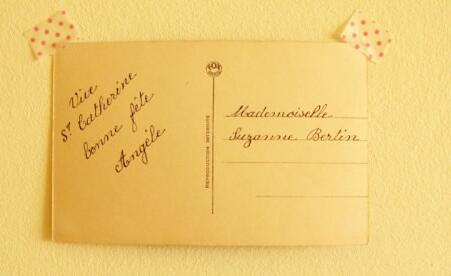 Vive
St Catherine
bonne fête
Angèle
REPRODUCTION INTERDITE
Mademoiselle
Suzanne Bertin